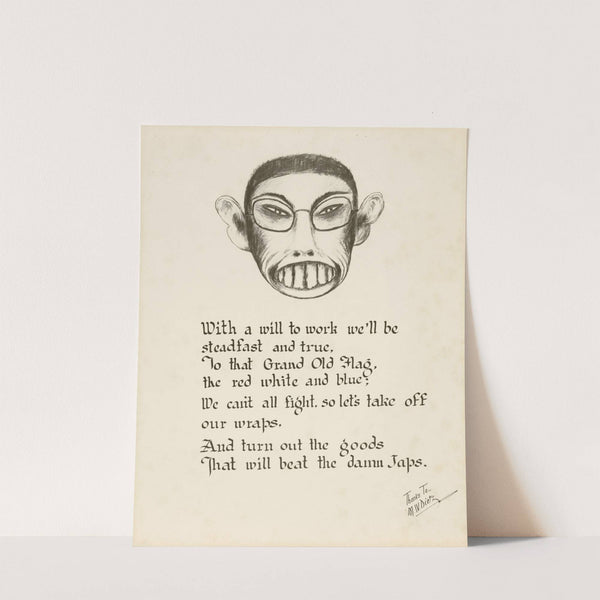 With a will to work we'll be
steadfast and true,
To that Grand Old Flag,
the red white and blue;
We can't all fight, so let's take off
our wraps,
And turn out the goods
That will beat the damn Japs.
Thanks To-